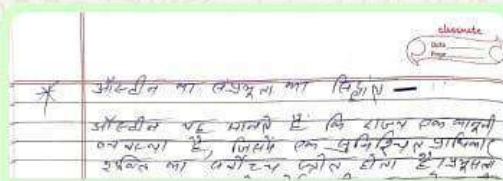 classmate
Date
Page
* ऑस्टीन का संप्रभुता का सिद्धांत —
ऑस्टीन यह मानते हैं कि राज्य एक कानूनी
व्यवस्था है, जिसमें एक सुनिश्चित प्राधिकार
शक्ति का सर्वोच्च स्रोत होता है। प्रभुसत्ता